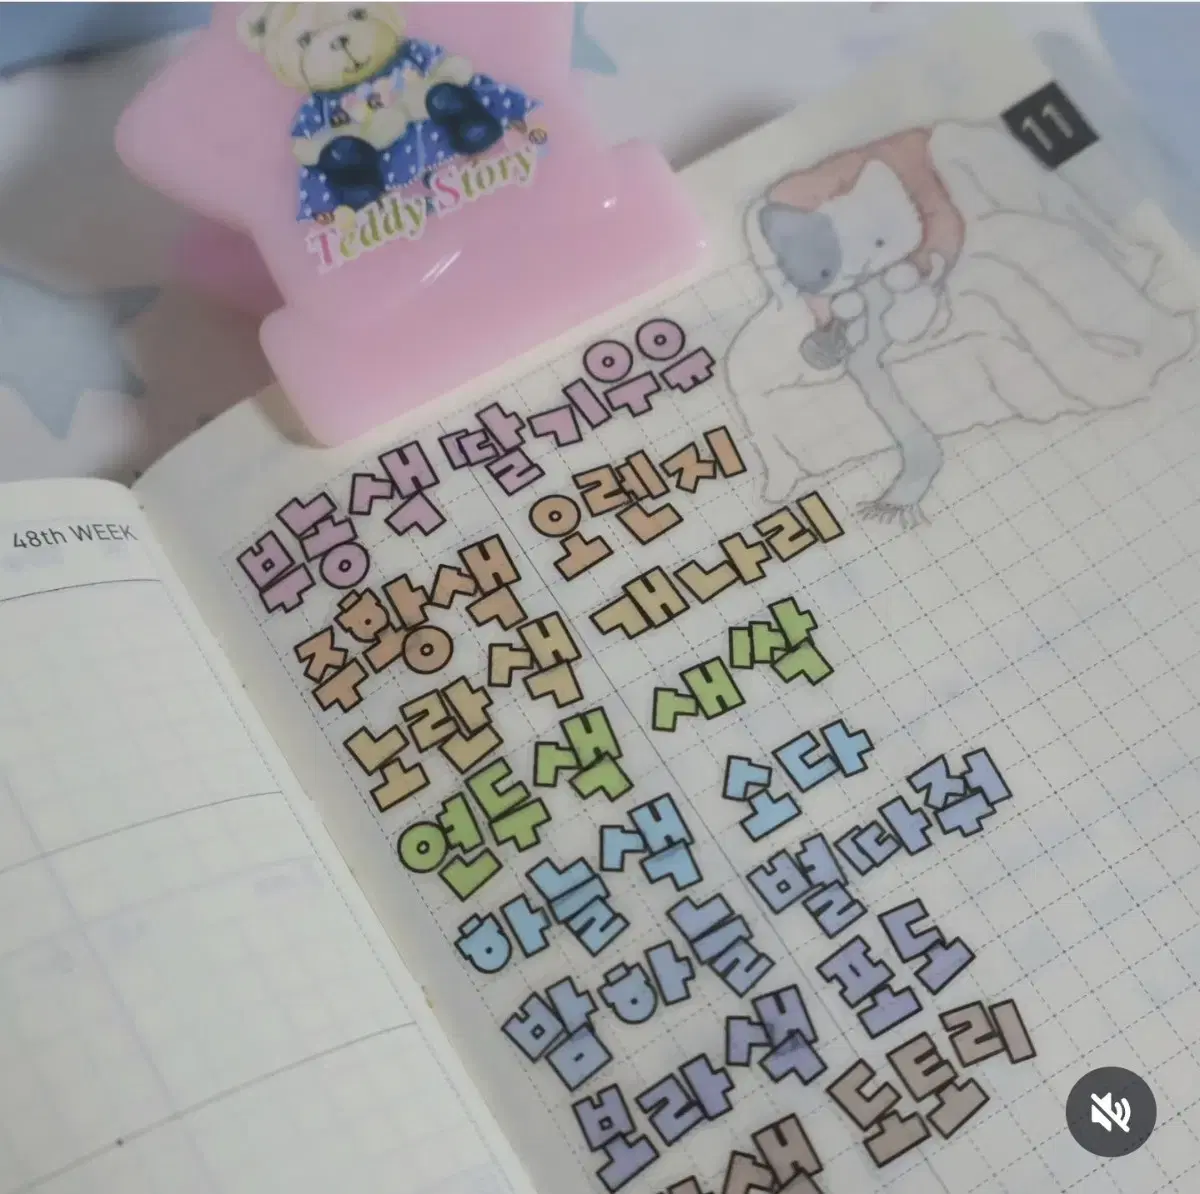 Teddy Story
11
48th WEEK
분홍색 딸기우유
주황색 오렌지
노란색 개나리
연두색 새싹
하늘색 소다
밤하늘 별다줘
보라색 포도
색 도토리